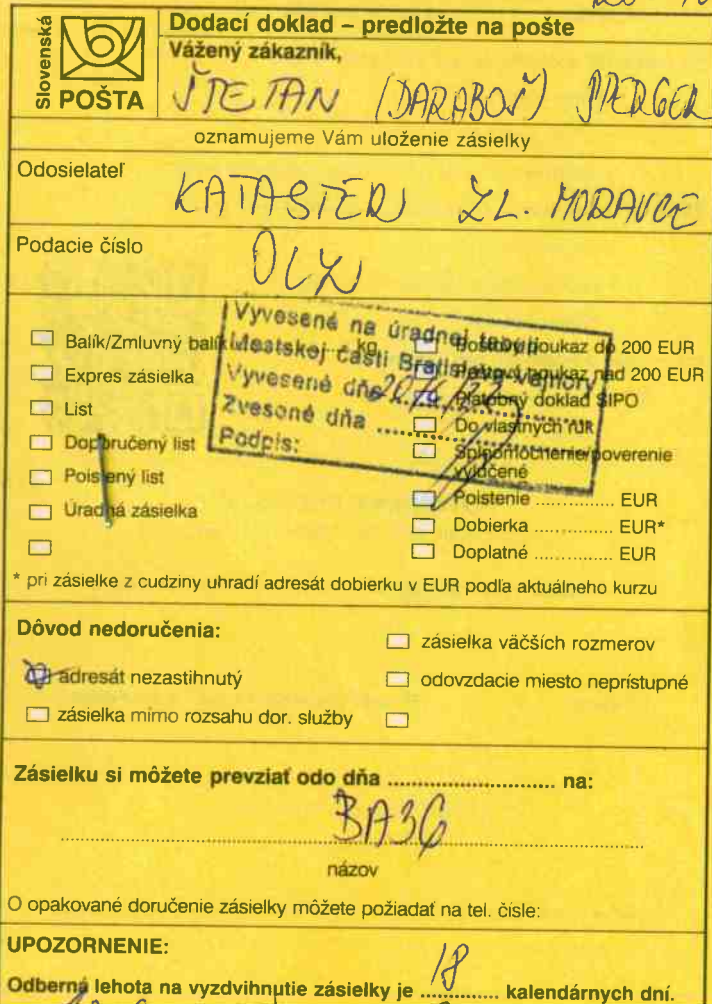 Slovenská
POŠTA
Dodací doklad – predložte na pošte
Vážený zákazník,
ŠTEFAN (DARABOŠ) SPERGER
oznamujeme Vám uloženie zásielky
Odosielateľ
KATASTER ZL. MORAVCE
Podacie číslo
Vyvesené na úradnej tabuli
Mestskej časti Bratislava-Vajnory
Vyvesené dňa
Zvesené dňa ..................
Podpis:
Balík/Zmluvný balík kg
Expres zásielka
List
Doporučený list
Poistený list
Úradná zásielka
Poštový poukaz do 200 EUR
Poštový poukaz nad 200 EUR
Platobný doklad SIPO
Do vlastných rúk
Splnomocnenie/poverenie
vylúčené
Poistenie ............... EUR
Dobierka .............. EUR*
Doplatné .............. EUR
* pri zásielke z cudziny uhradí adresát dobierku v EUR podľa aktuálneho kurzu
Dôvod nedoručenia:
adresát nezastihnutý
zásielka mimo rozsahu dor. služby
zásielka väčších rozmerov
odovzdacie miesto neprístupné
Zásielku si môžete prevziať odo dňa ............................ na:
BA36
názov
O opakované doručenie zásielky môžete požiadať na tel. čísle:
UPOZORNENIE:
Odberná lehota na vyzdvihnutie zásielky je 18 kalendárnych dní.